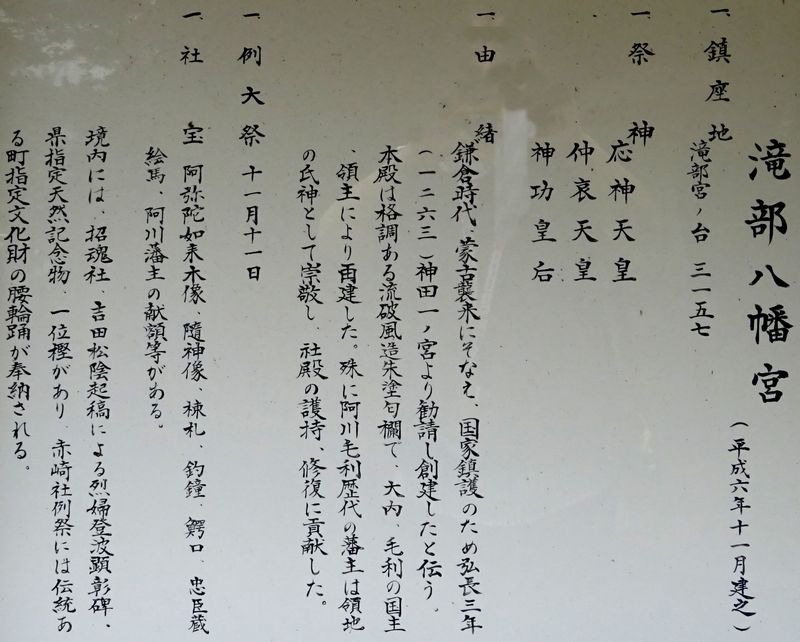 滝部八幡宮
(平成六年十一月建之)
一、鎮座地
滝部宮ノ台 三一五七
一、祭神
応神天皇
仲哀天皇
神功皇后
一、由緒
鎌倉時代、蒙古襲来にそなえ、国家鎮護のため弘長三年
(一二六三)神田一ノ宮より勧請し創建したと伝う。
本殿は格調ある流破風造朱塗勾欄で、大内、毛利の国主
、領主により再建した。殊に阿川毛利歴代の藩主は領地
の氏神として崇敬し、社殿の護持、修復に貢献した。
一、例大祭 十一月十一日
一、社宝 阿弥陀如来木像、隨神像、棟札、釣鐘、鰐口、忠臣蔵
絵馬、阿川藩主の献額等がある。
境内には、招魂社、吉田松陰起稿による烈婦登波顕彰碑、
県指定天然記念物、一位樫があり、赤崎社例祭には伝統あ
る町指定文化財の腰輪踊が奉納される。